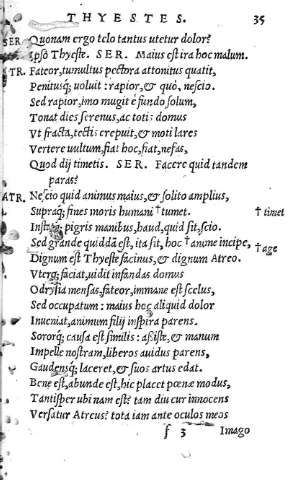 THYESTES. 35
SER. Quonam ergo telo tantus utetur dolor?
Ipso Thyeste. SER. Maius est ira hoc malum.
ATR. Fateor, tumultus pectora attonitus quatit,
Penitusq; uoluit: rapior, & quò, nescio.
Sed rapior, imo mugit è fundo solum,
Tonat dies serenus, ac totis domus
Vt fracta, tectis crepuit, & moti lares
Vertere uultum, fiat hoc, fiat, nefas,
Quod dij timetis. SER. Facere quid tandem
paras?
ATR. Nescio quid animus maius, & solito amplius,
Supraq; fines moris humani † tumet. † timet
Instatq; pigris manibus, haud, quid sit, scio.
Sed grande quiddã est, ita sit, hoc † anime incipe, † age
Dignum est Thyeste facinus, & dignum Atreo.
Vterq; faciat, uidit infandas domus
Odrysia mensas, fateor, immane est scelus,
Sed occupatum: maius hoc aliquid dolor
Inueniat, animum filij inspira parens.
Sororq; causa est similis: assiste, & manum
Impelle nostram, liberos auidus parens,
Gaudensq; laceret, & suos artus edat.
Bene est, abunde est, hic placet pœnæ modus,
Tantisper ubi nam est? tam diu cur innocens
Versatur Atreus? tota iam ante oculos meos
f 3 Imago